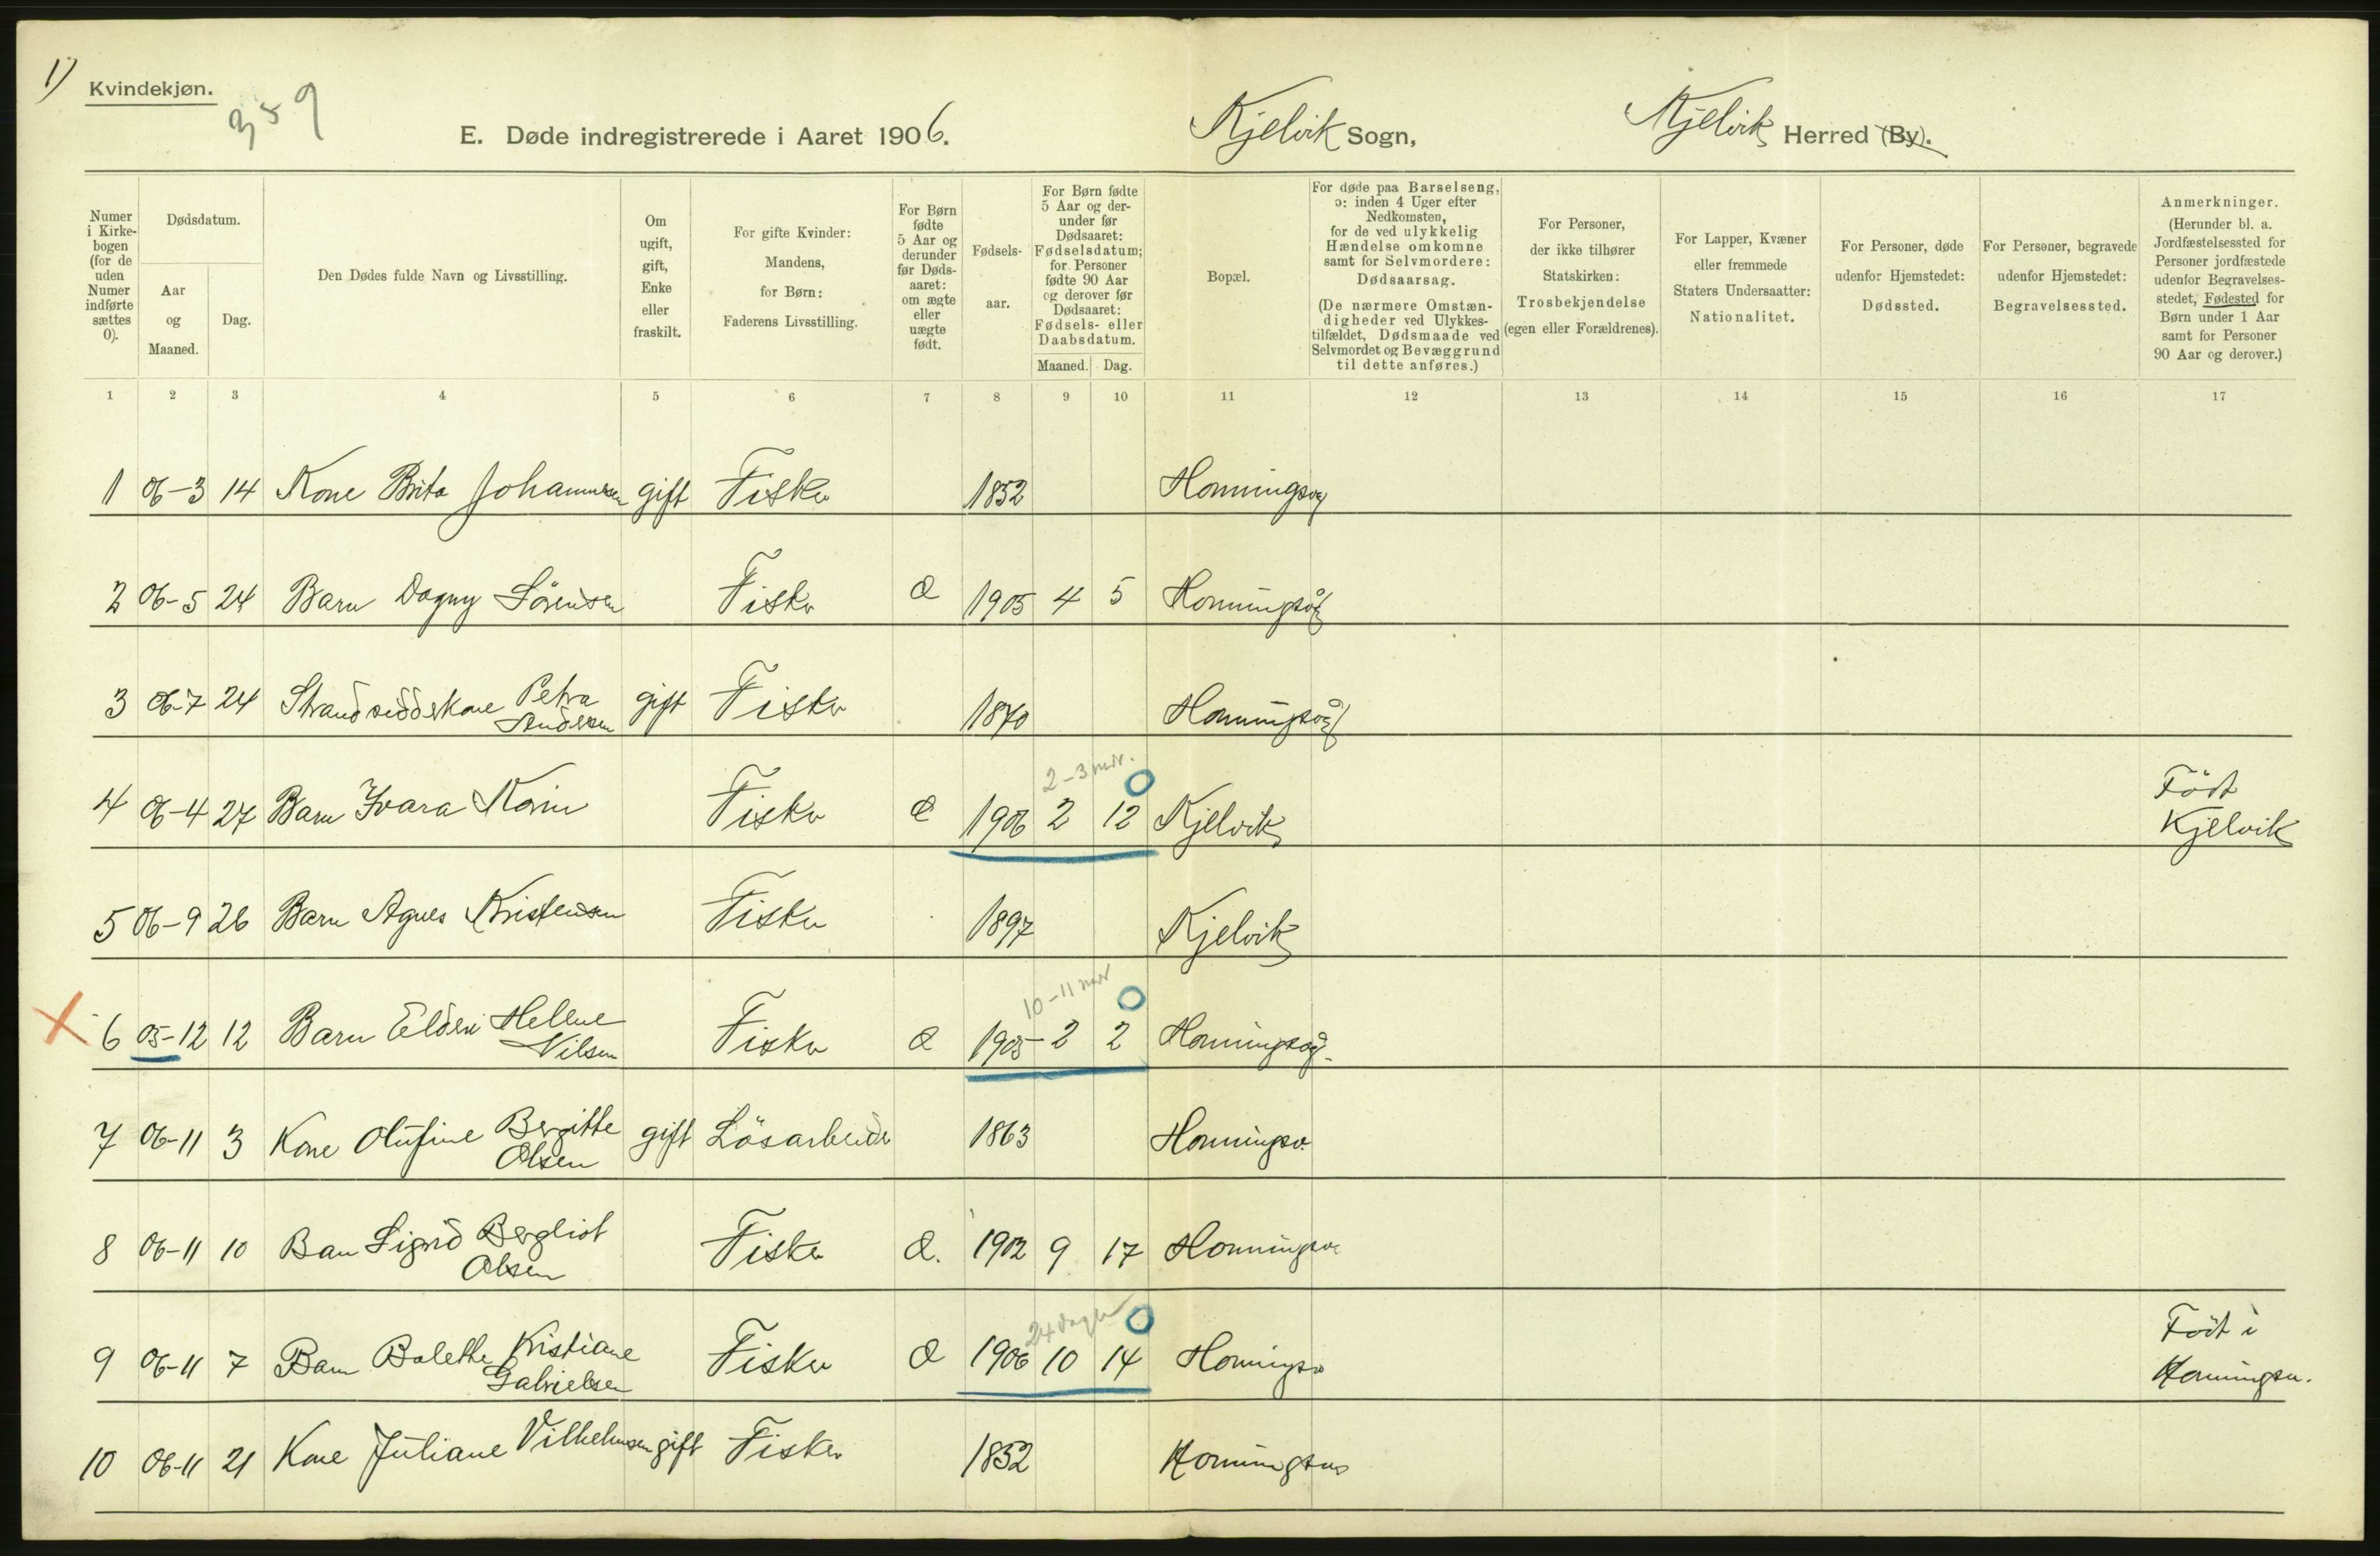 1)
Kvindekjøn.
359
E. Døde indregistrerede i Aaret 1906. Kjelvik Sogn, Kjelvik Herred (By).
Numer i Kirke- bogen (for de uden Numer indførte sættes 0).
Dødsdatum.
Aar og Maaned.
Dag.
Den Dødes fulde Navn og Livsstilling.
Om ugift, gift, Enke eller fraskilt.
For gifte Kvinder: Mandens, for Børn: Faderens Livsstilling.
For Børn fødte 5 Aar og derunder før Døds- aaret: om ægte eller uægte født.
Fødsels- aar.
For Børn fødte 5 Aar og der- under før Dødsaaret: Fødselsdatum; for Personer fødte 90 Aar og derover før Dødsaaret: Fødsels- eller Daabsdatum.
Maaned. Dag.
Bopæl.
For døde paa Barselseng, ɔ: inden 4 Uger efter Nedkomsten, for de ved ulykkelig Hændelse omkomne samt for Selvmordere: Dødsaarsag.
(De nærmere Omstæn- digheder ved Ulykkes- tilfældet, Dødsmaade ved Selvmordet og Bevæggrund til dette anføres.)
For Personer, der ikke tilhører Statskirken: Trosbekjendelse (egen eller Forældrenes).
For Lapper, Kvæner eller fremmede Staters Undersaatter: Nationalitet.
For Personer, døde udenfor Hjemstedet: Dødssted.
For Personer, begravede udenfor Hjemstedet: Begravelsessted.
Anmerkninger.
(Herunder bl. a. Jordfæstelsessted for Personer jordfæstede udenfor Begravelses- stedet, Fødested for Børn under 1 Aar samt for Personer 90 Aar og derover.)
1 2 3 4 5 6 7 8 9 10 11 12 13 14 15 16 17
1 06-3 14 Kone Brita Johannesen gift Fisker 1852 Honningsvog
2 06-5 24 Barn Dagny Sörensen Fisker Æ 1905 4 5 Honningsvåg
3 06-7 24 Strandsidderkone Petra Andersen gift Fisker 1870 Honningsvåg
2-3 mdr. 0
4 06-4 27 Barn Ivara Karin Fisker Æ 1906 2 12 Kjelvik Födt Kjelvik
5 06-9 26 Barn Agnes Kristensen Fisker 1897 Kjelvik
10-11 mdr 0
6 05-12 12 Barn Eldevi Helene Nilsen Fisker Æ 1905 2 2 Honningsvåg
7 06-11 3 Kone Olufine Bergitte Olsen gift Lösarbeider 1863 Honningsv.
8 06-11 10 Barn Sigrid Bergliot Olsen Fisker Æ. 1902 9 17 Honningsv
24 dager 0
9 06-11 7 Barn Bolette Kristiane Gabrielsen Fisker Æ 1906 10 14 Honningsv Födt i Honningsv.
10 06-11 21 Kone Juliane Vilhelmsen gift Fisker 1852 Honningsv